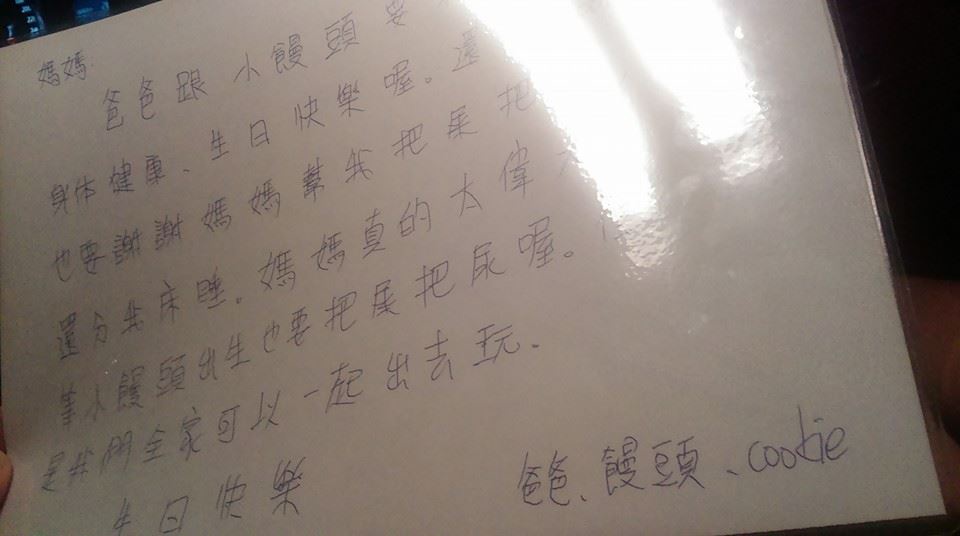 媽媽.
爸爸跟小饅頭要
身体健康、生日快樂喔。還
也要謝謝媽媽幫我把屎把
還分我床睡。媽媽真的太偉
等小饅頭出生也要把屎把尿喔。
是我們全家可以一起出去玩.
生日快樂
爸爸、饅頭、cookie